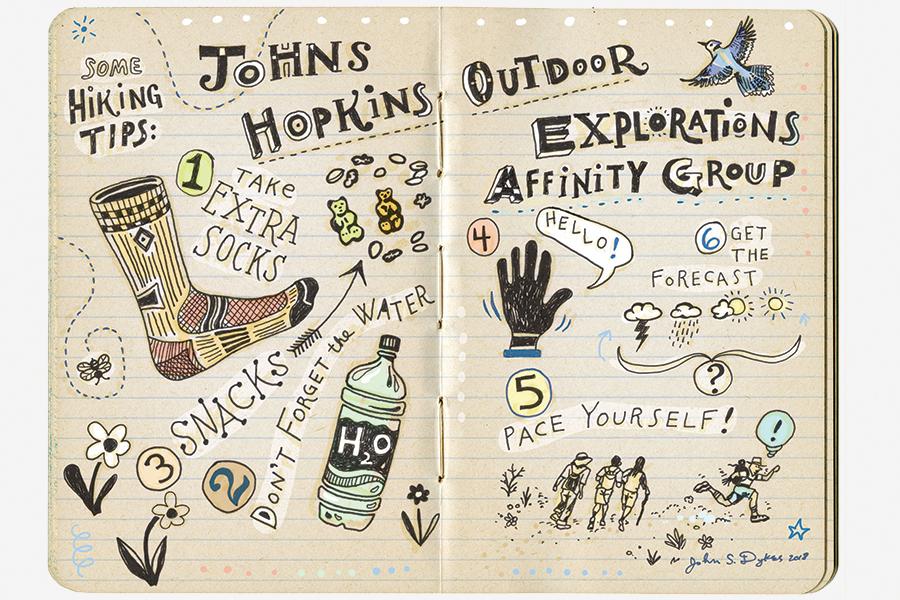 SOME
HIKING
TIPS:
JOHNS
HOPKINS
OUTDOOR
EXPLORATIONS
AFFINITY GROUP
1
TAKE
EXTRA
SOCKS
2
DON'T FORGET the WATER
H2O
3
SNACKS
4
HELLO!
5
PACE YOURSELF!
!
6
GET
THE
FORECAST
?
John S. Dykes 2018